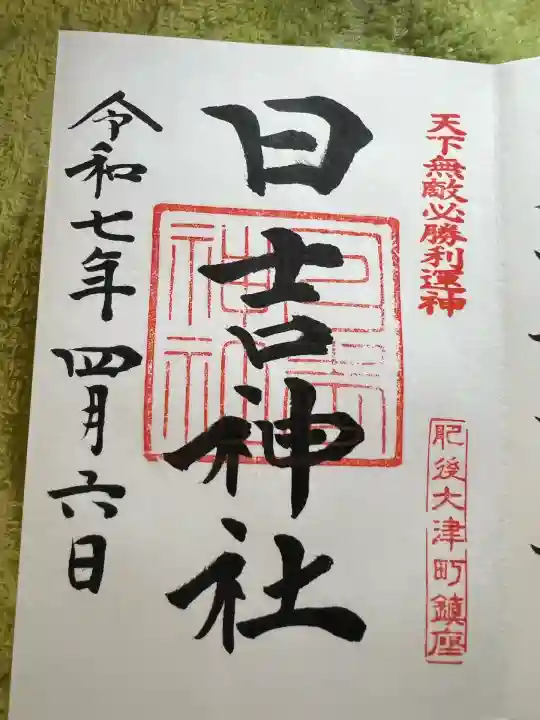 天下無敵必勝利運神
肥後大津町鎮座
日吉神社
令和七年四月六日